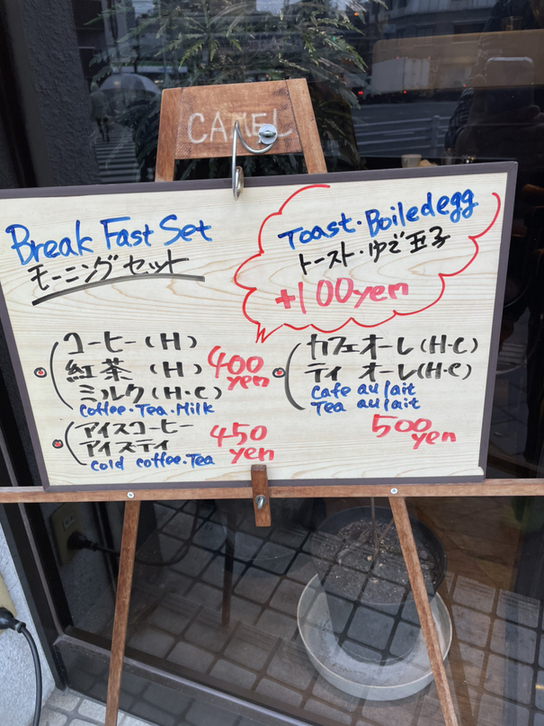 CAMEL
Break Fast Set
モーニングセット
Toast・Boiledegg
トースト・ゆで玉子
+100yen
コーヒー(H)
紅茶(H)
ミルク(H・C)
400
yen
coffee・Tea・Milk
アイスコーヒー
アイスティ
450
yen
cold coffee・Tea
カフェオーレ(H・C)
ティオーレ(H・C)
Cafe au/ait
Tea au/ait
500
yen